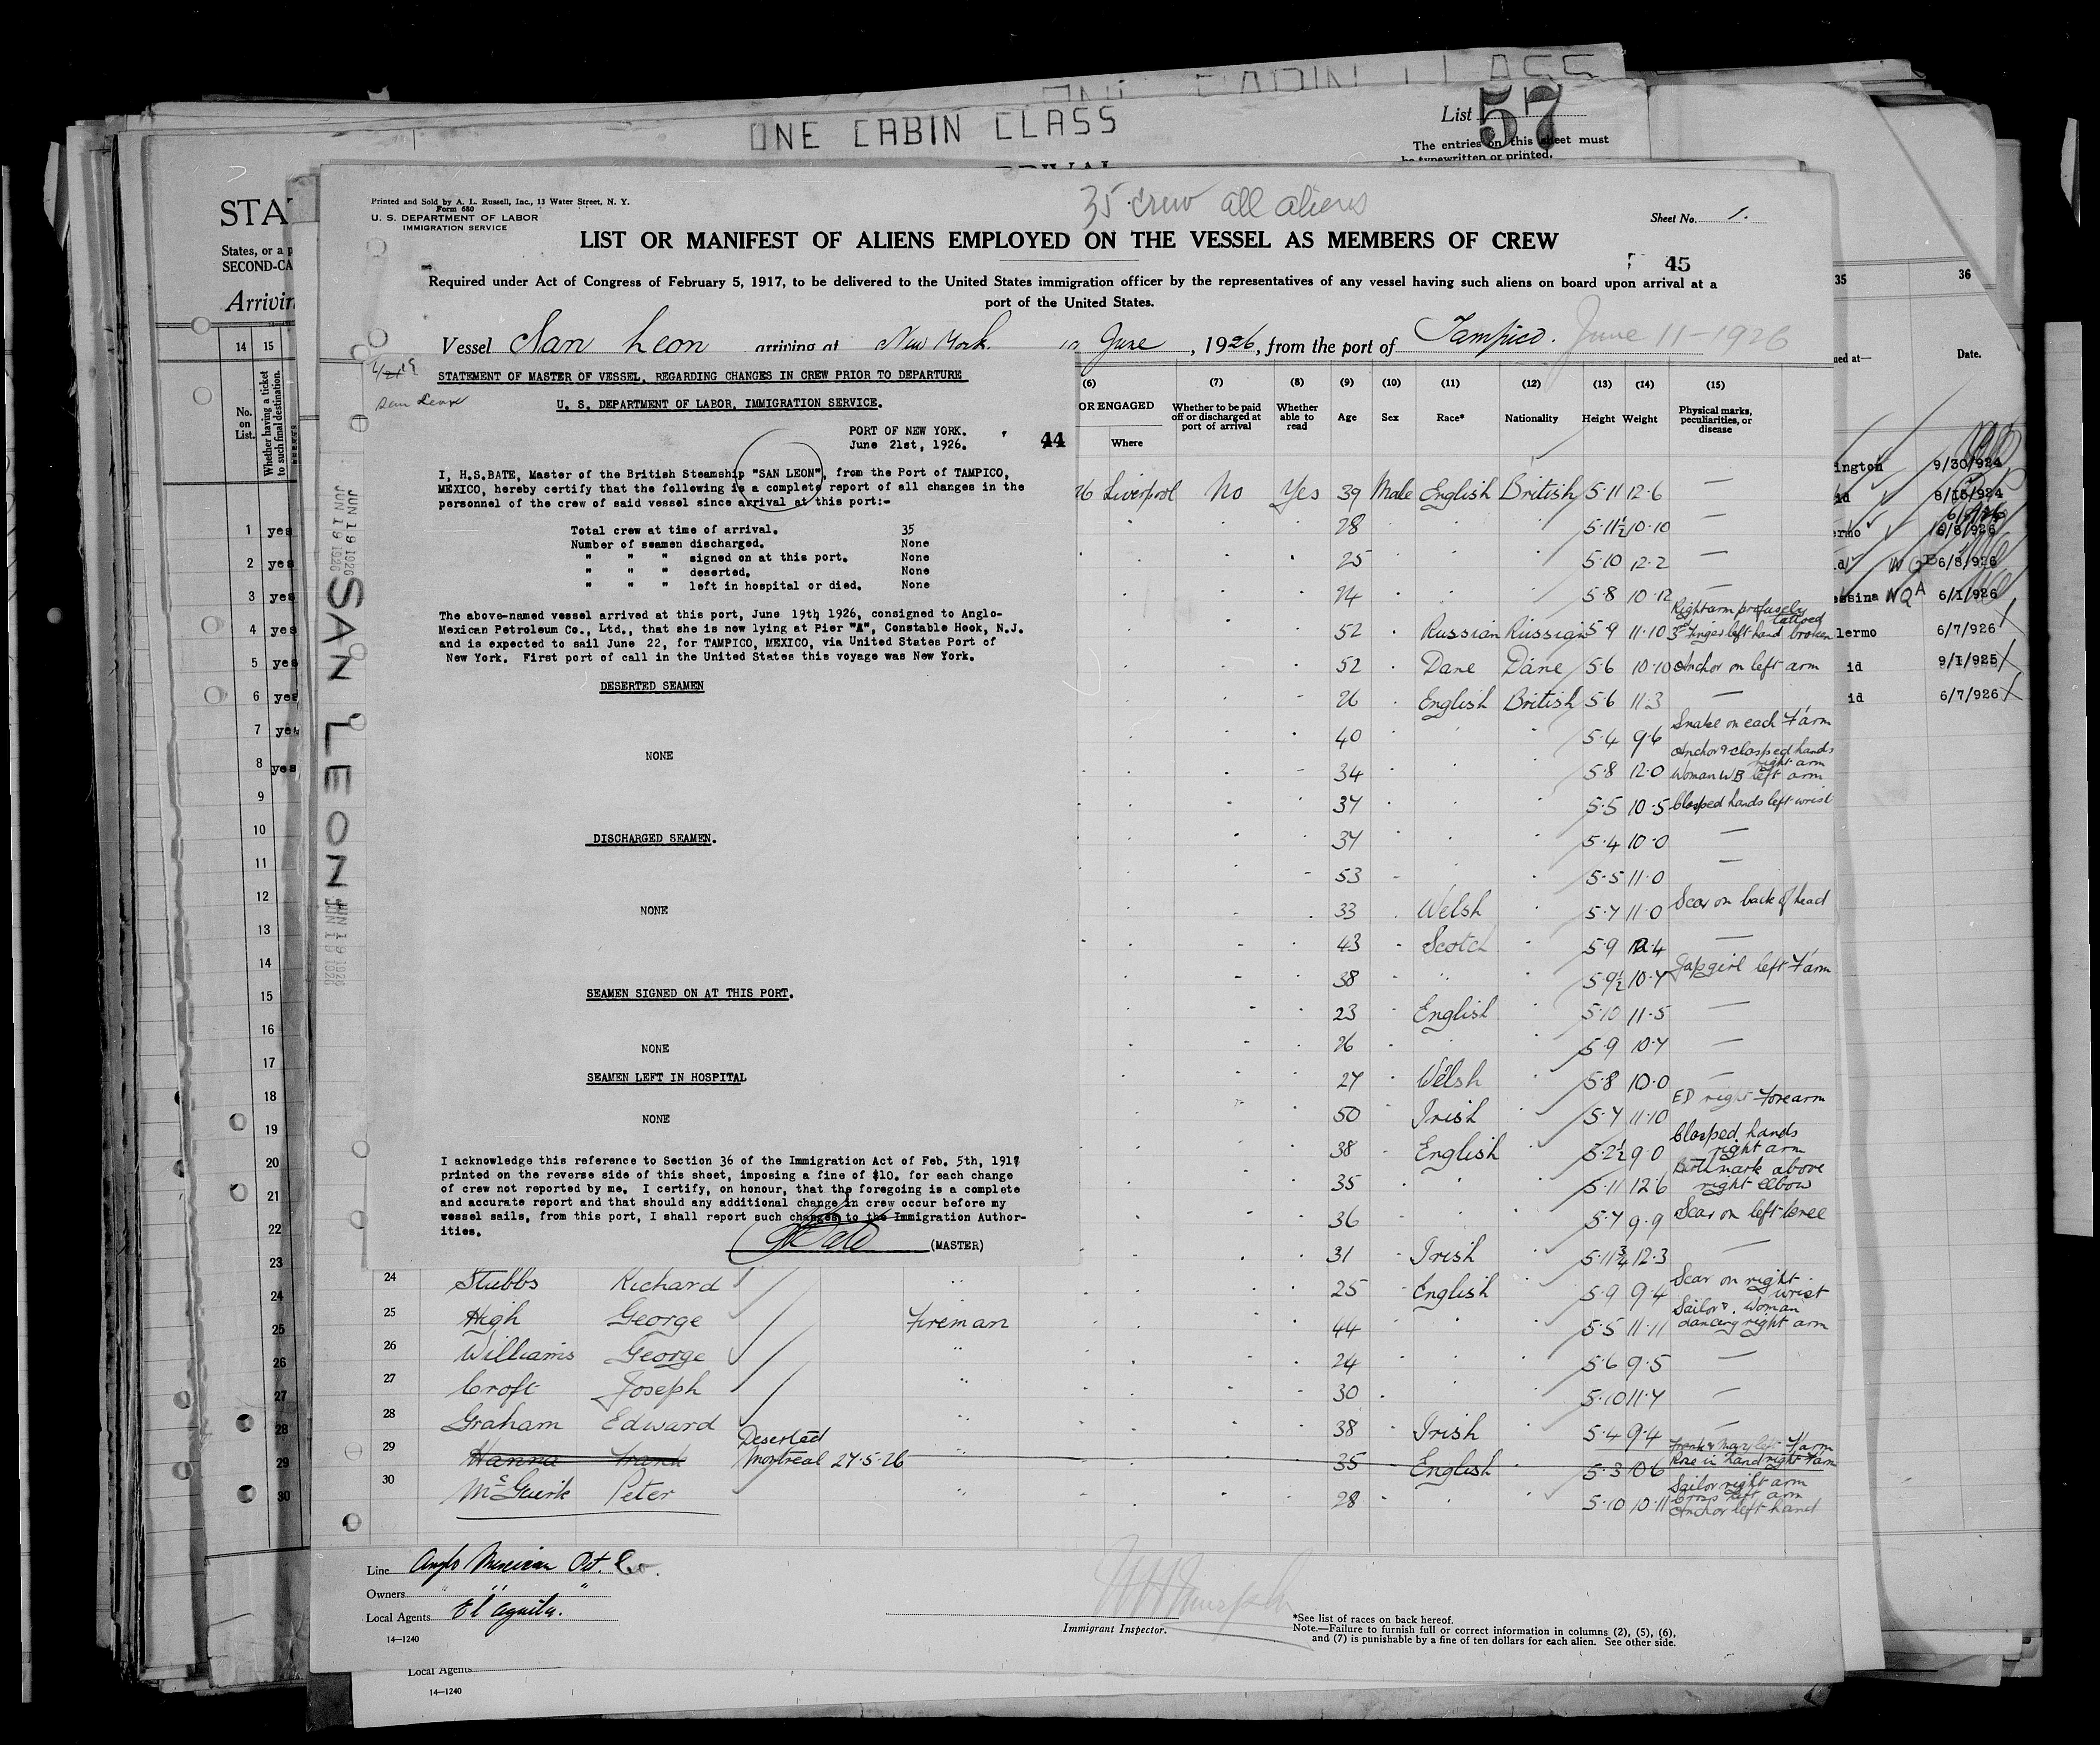 ONE CABIN CLASS
List 57
The entries on this sheet must
be typewritten or printed.
STA
States, or a p
SECOND-CA
Arrivin
14 15
No. on List.
Whether having a ticket to such final destination.
1 yes
2 yes
3 yes
4 yes
5 yes
6 yes
7 yes
8 yes
9
10
11
12
13
14
15
16
17
18
19
20
21
22
23
24
25
26
27
28
29
30
Printed and Sold by A. L. Russell, Inc., 13 Water Street, N. Y.
Form 680
U. S. DEPARTMENT OF LABOR
IMMIGRATION SERVICE
35 crew all aliens
Sheet No. 1.
LIST OR MANIFEST OF ALIENS EMPLOYED ON THE VESSEL AS MEMBERS OF CREW
45
Required under Act of Congress of February 5, 1917, to be delivered to the United States immigration officer by the representatives of any vessel having such aliens on board upon arrival at a
port of the United States.
Vessel San Leon arriving at New York. June, 1926, from the port of Tampico. June 11-1926
San Leon
JUN 19 1926
JUN 19 1926
SAN LEON
JUN 19 1926
JUN 19 1926
STATEMENT OF MASTER OF VESSEL, REGARDING CHANGES IN CREW PRIOR TO DEPARTURE
U. S. DEPARTMENT OF LABOR, IMMIGRATION SERVICE.
PORT OF NEW YORK.
June 21st, 1926.
44
I, H.S.BATE, Master of the British Steamship "SAN LEON", from the Port of TAMPICO,
MEXICO, hereby certify that the following is a complete report of all changes in the
personnel of the crew of said vessel since arrival at this port:-
Total crew at time of arrival. 35
Number of seamen discharged. None
" " " signed on at this port. None
" " " deserted. None
" " " left in hospital or died. None
The above-named vessel arrived at this port, June 19th 1926, consigned to Anglo-
Mexican Petroleum Co., Ltd., that she is now lying at Pier "A", Constable Hook, N.J.
and is expected to sail June 22, for TAMPICO, MEXICO, via United States Port of
New York. First port of call in the United States this voyage was New York.
DESERTED SEAMEN
NONE
DISCHARGED SEAMEN.
NONE
SEAMEN SIGNED ON AT THIS PORT.
NONE
SEAMEN LEFT IN HOSPITAL
NONE
I acknowledge this reference to Section 36 of the Immigration Act of Feb. 5th, 1917
printed on the reverse side of this sheet, imposing a fine of $10. for each change
of crew not reported by me. I certify, on honour, that the foregoing is a complete
and accurate report and that should any additional change in crew occur before my
vessel sails, from this port, I shall report such changes to the Immigration Author-
ities.
(MASTER)
(6) (7) (8) (9) (10) (11) (12) (13) (14) (15)
OR ENGAGED
Where
Whether to be paid off or discharged at port of arrival
Whether able to read
Age Sex Race* Nationality Height Weight
Physical marks, peculiarities, or disease
26 Liverpool No Yes 39 Male English British 5·11 12·6 —
28 5·11½ 10·10 —
25 5·10 12·2 —
24 5·8 10·12 —
52 Russian Russian 5·9 11·10 Right arm profusely tattoed 3rd finger left hand broken
52 Dane Dane 5·6 10·10 Anchor on left arm
26 English British 5·6 11·3 —
40 5·4 9·6 Snake on each F'arm
34 5·8 12·0 Anchor & clasped hands right arm Woman WB left arm
37 5·5 10·5 Clasped hands left wrist
37 5·4 10·0 —
53 5·5 11·0 —
33 Welsh 5·7 11·0 Scar on back of head
43 Scotch 5·9 12·4 —
38 " 5·9½ 10·7 Jap girl left F'arm
23 English 5·10 11·5 —
26 5·9 10·7 —
27 Welsh 5·8 10·0 —
50 Irish 5·7 11·10 ED right Forearm
38 English 5·2½ 9·0 Clasped hands right arm
35 5·11 12·6 Birthmark above right elbow
36 5·7 9·9 Scar on left knee
31 Irish 5·11¾ 12·3 —
24 Stubbs Richard " 25 English 5·9 9·4 Scar on right wrist
25 High George Fireman 44 5·5 11·11 Sailor & Woman dancing right arm
26 Williams George " 24 5·6 9·5 —
27 Croft Joseph " 30 5·10 11·7 —
28 Graham Edward " 38 Irish 5·4 9·4 —
29 Hanna Frank Deserted Montreal 27·5·26 " 35 English 5·3 10·6 Frank & Mary left F'arm Rose in hand right F'arm
30 McGuirk Peter " 28 5·10 10·11 Sailor right arm Cross left arm Anchor left hand
Line Anglo Mexican Pet. Co.
Owners " " "
Local Agents El Aguila.
14—1240
Immigrant Inspector.
*See list of races on back hereof.
Note.—Failure to furnish full or correct information in columns (2), (5), (6),
and (7) is punishable by a fine of ten dollars for each alien. See other side.
Local Agents
14—1240
35 36
ued at— Date.
ington 9/30/924
id 8/15/924
ermo 10/8/926
id 6/8/926
essina NQA 6/1/926
lermo 6/7/926
id 9/1/925
id 6/7/926